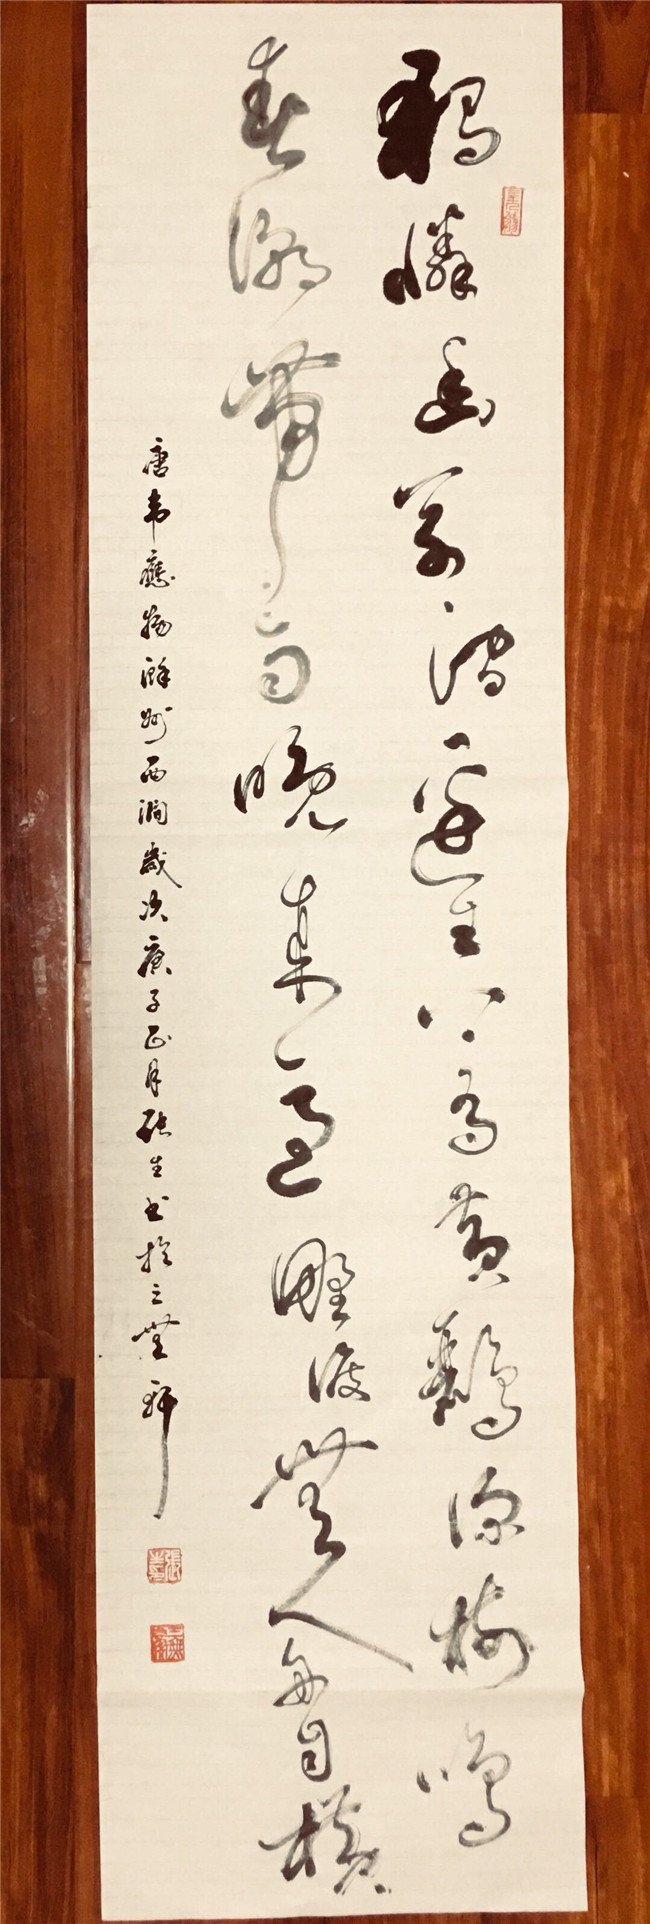 獨憐幽草澗邊生上有黃鸝深樹鳴
春潮帶雨晚來急野渡無人舟自橫
唐韋應物滁州西澗歲次庚子正月生書於無軒